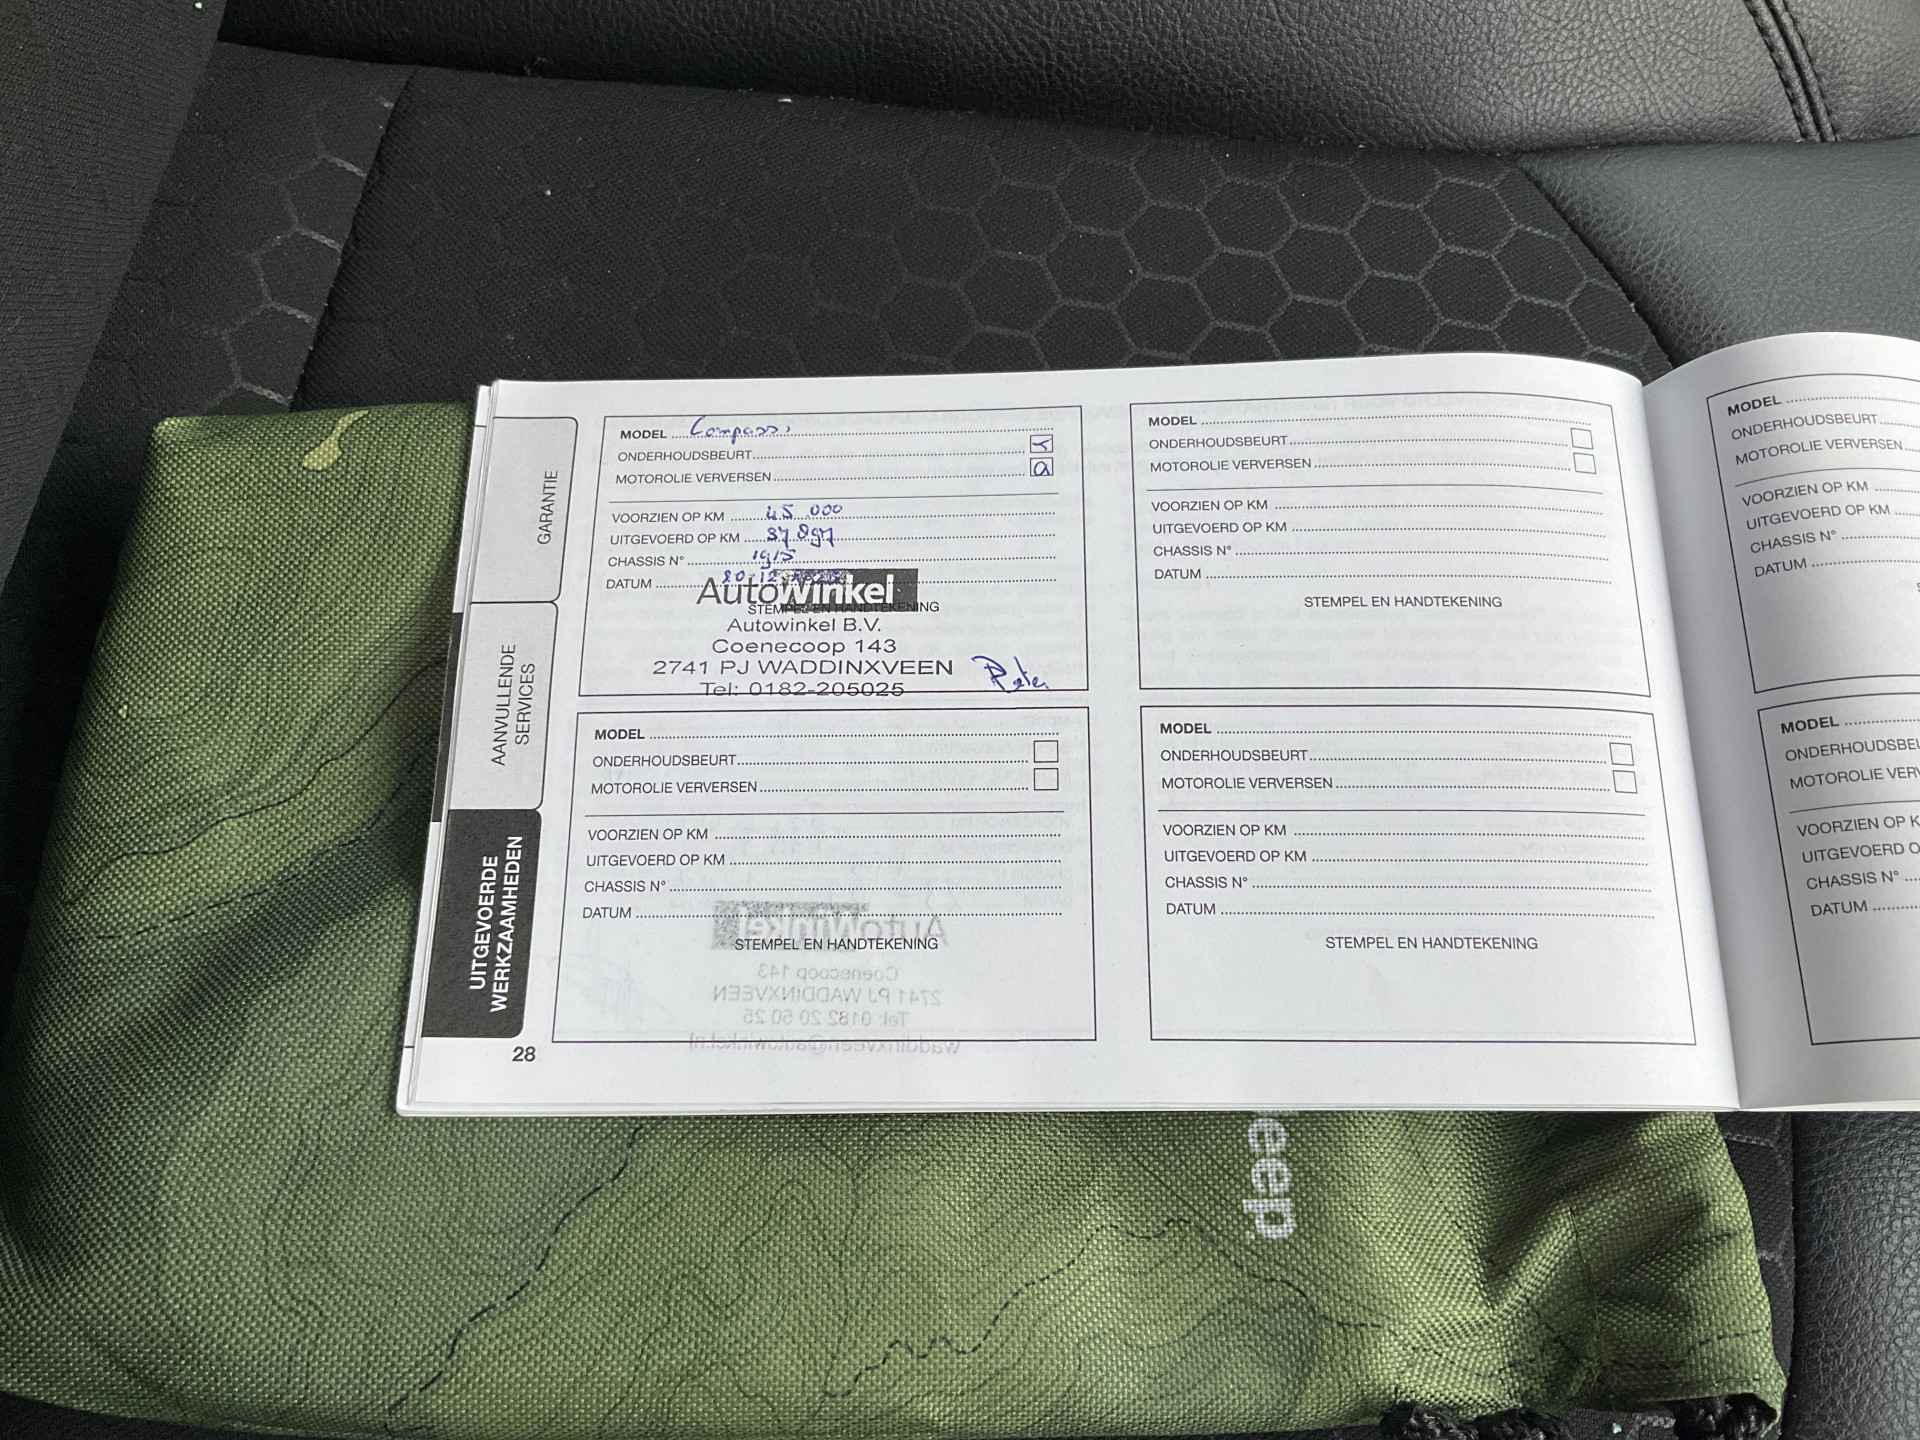 GARANTIE
AANVULLENDE
SERVICES
UITGEVOERDE
WERKZAAMHEDEN
MODEL Compass
ONDERHOUDSBEURT
MOTOROLIE VERVERSEN
VOORZIEN OP KM 45.000
UITGEVOERD OP KM
CHASSIS N° 1915
DATUM 20-12-
AutoWinkel
STEMPEL EN HANDTEKENING
Autowinkel B.V.
Coenecoop 143
2741 PJ WADDINXVEEN
Tel: 0182-205025
MODEL
ONDERHOUDSBEURT
MOTOROLIE VERVERSEN
VOORZIEN OP KM
UITGEVOERD OP KM
CHASSIS N°
DATUM
STEMPEL EN HANDTEKENING
MODEL
ONDERHOUDSBEURT
MOTOROLIE VERVERSEN
VOORZIEN OP KM
UITGEVOERD OP KM
CHASSIS N°
DATUM
STEMPEL EN HANDTEKENING
MODEL
ONDERHOUDSBEURT
MOTOROLIE VERVERSEN
VOORZIEN OP KM
UITGEVOERD OP KM
CHASSIS N°
DATUM
STEMPEL EN HANDTEKENING
28
MODEL
ONDERHOUDSBEURT
MOTOROLIE VERVERSEN
VOORZIEN OP KM
UITGEVOERD OP KM
CHASSIS N°
DATUM
MODEL
ONDERHOUDSBEU
MOTOROLIE VERV
VOORZIEN OP K
UITGEVOERD O
CHASSIS N°
DATUM
eep